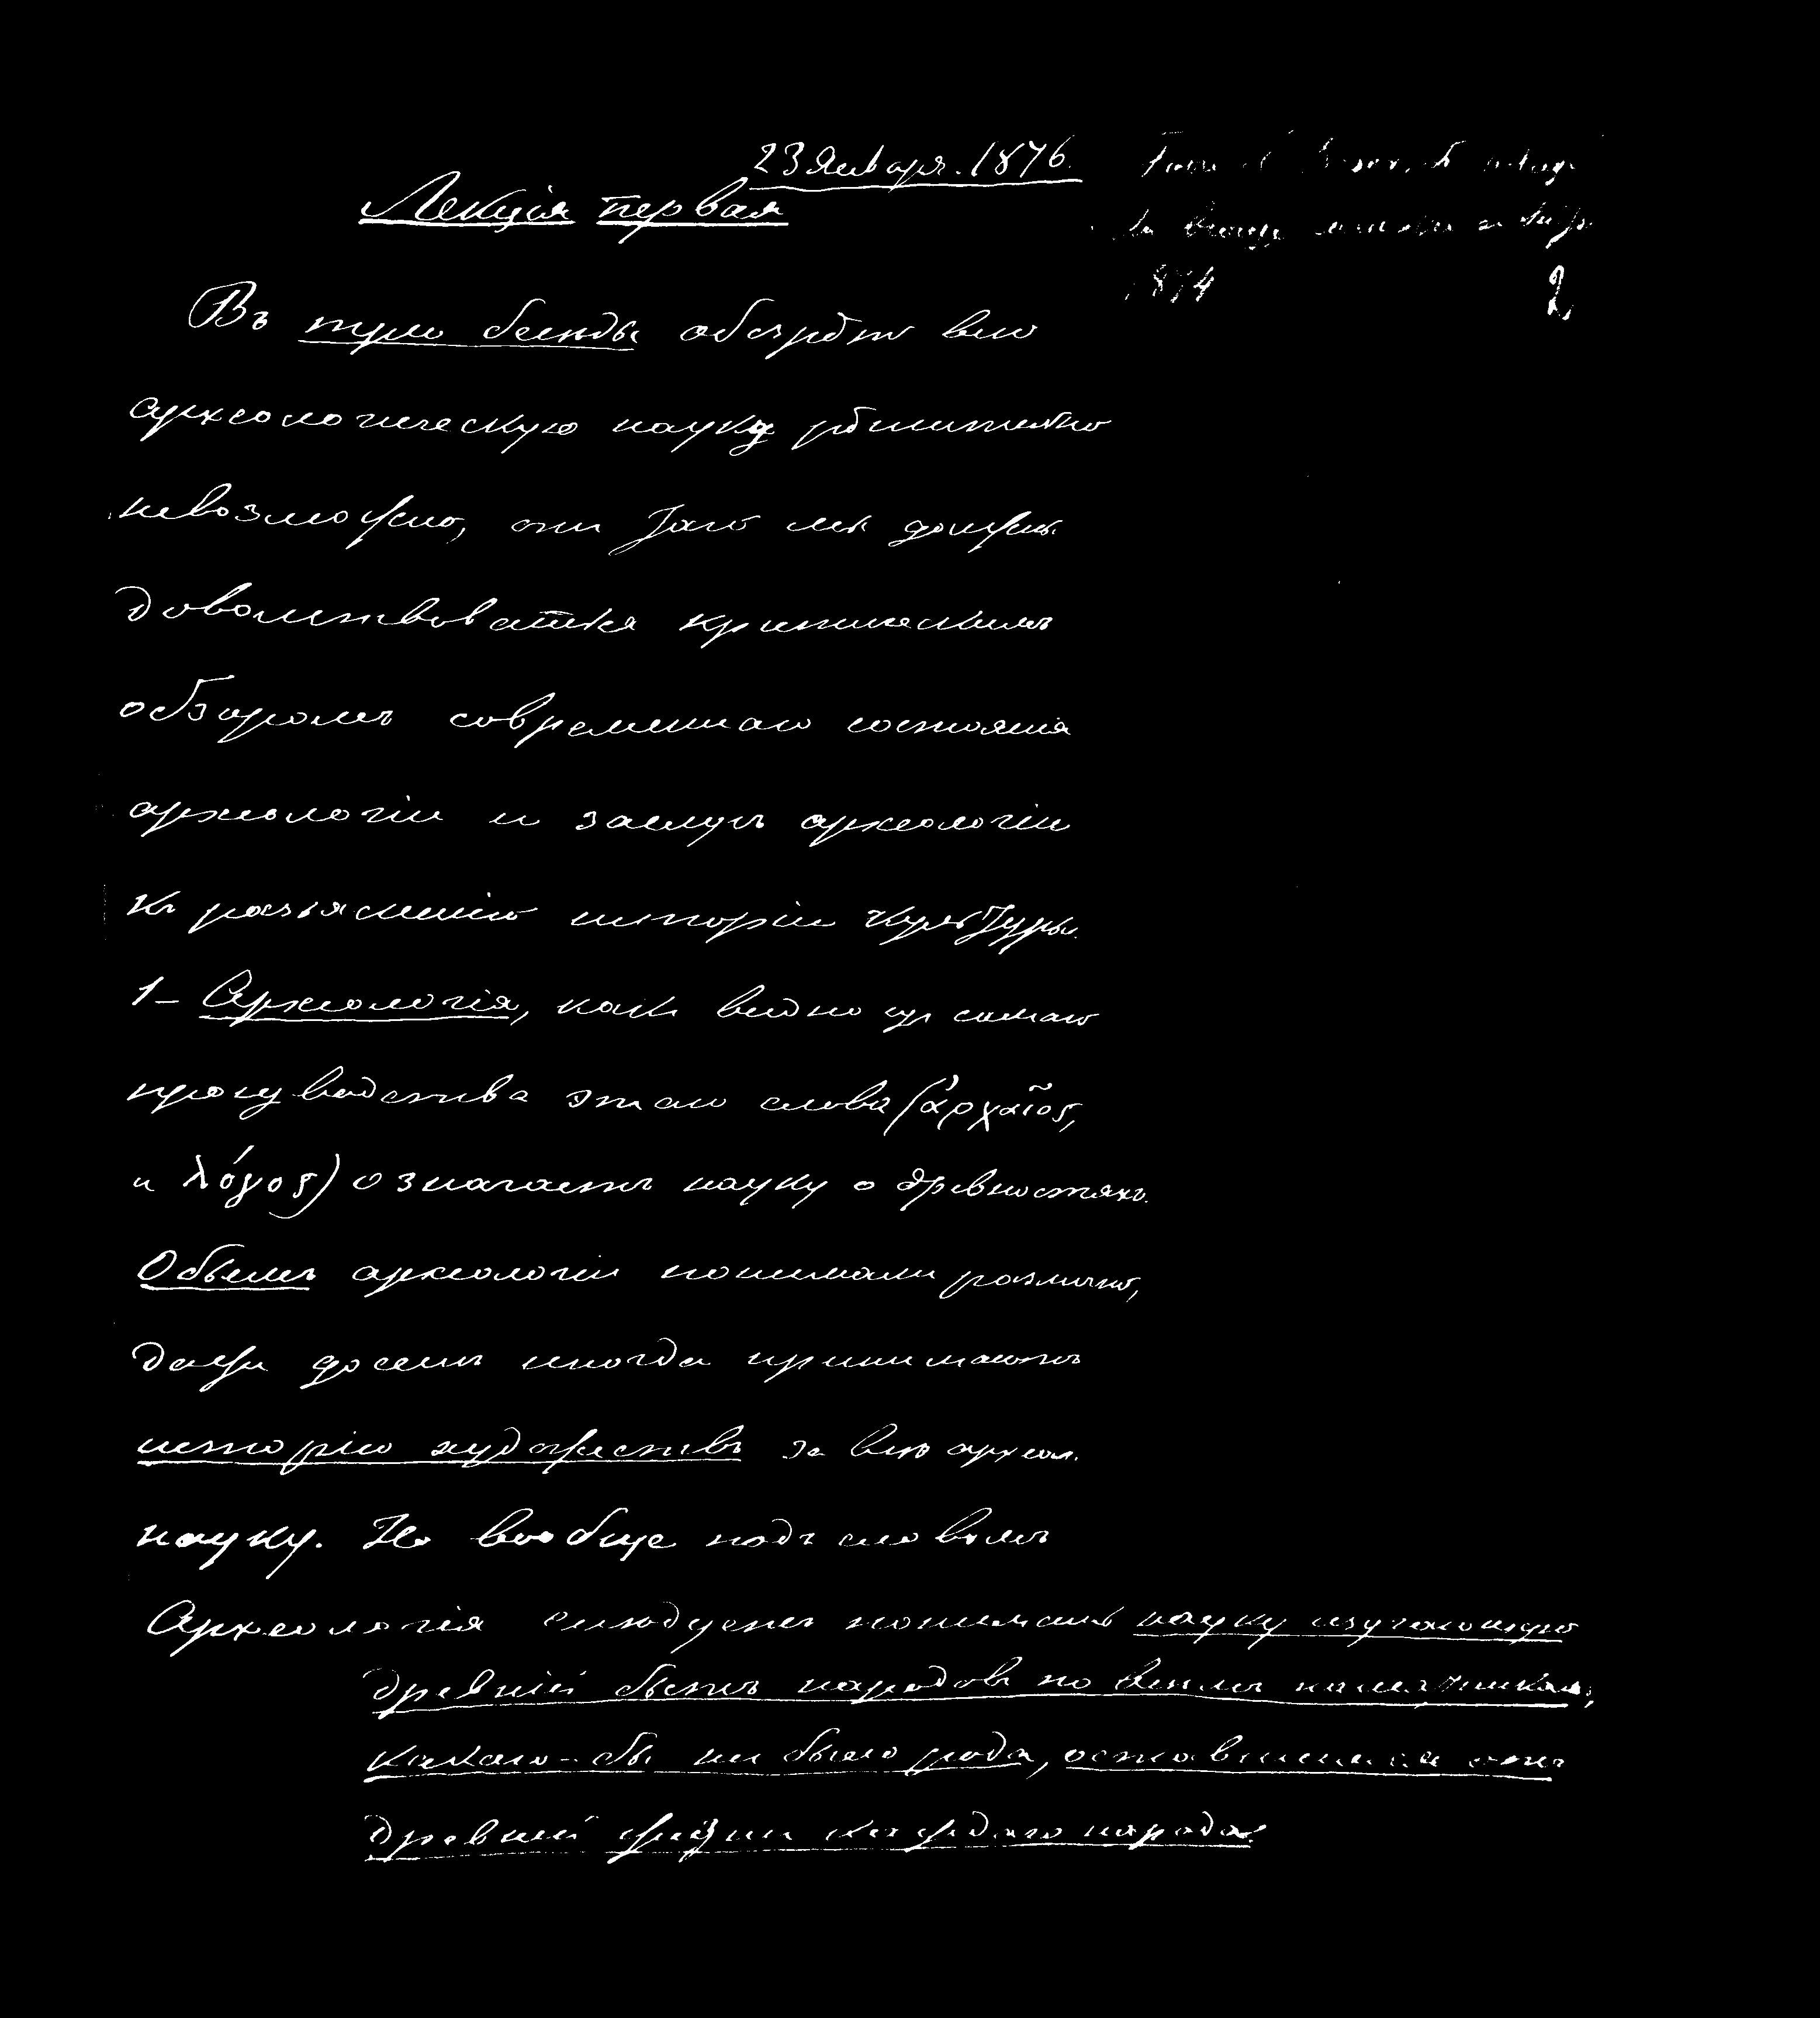 23 Января. 1876.
Лекція первая
1874
2
Въ три бесѣды обозрѣть всю
археологическую науку рѣшительно
невозможно,
довольствоваться критическимъ
обзоромъ современнаго состоянія
археологіи и заслугъ археологіи
къ разъясненію исторіи культуры.
1- Археологія, какъ видно изъ самаго
производства этаго слова (ἀρχαῖος,
и λόγος) означаетъ науку о древностяхъ.
Объемъ археологіи понимали различно,
даже доселѣ иногда принимаютъ
исторію художествъ за всю археол.
науку. Но вообще подъ словомъ
Археологія слѣдуетъ понимать науку изучающую
древній бытъ народовъ по всѣмъ памятникам,
какаго-бы ни было рода, оставшимся отъ
древней жизни каждаго народа.